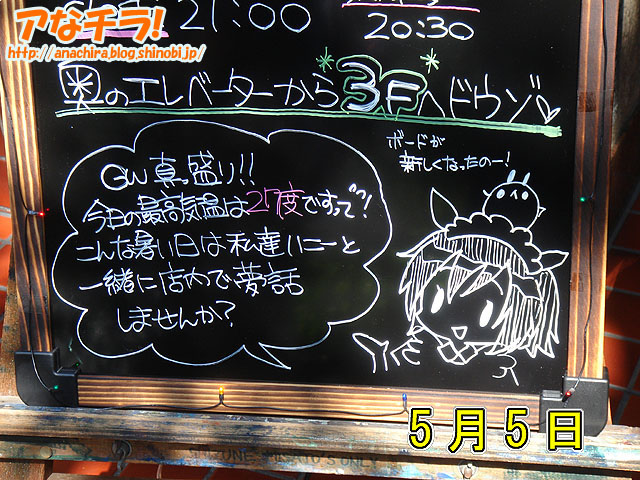 アなチラ!
http://anachira.blog.shinobi.jp/
21:00
20:30
奥のエレベーターから3Fへドウゾ♡
ボードが
新しくなったのー!
GW真っ盛り!!
今日の最高気温は25度ですって?!
こんな暑い日は私達いこーと
一緒に店内で夢話
しませんか?
5月5日